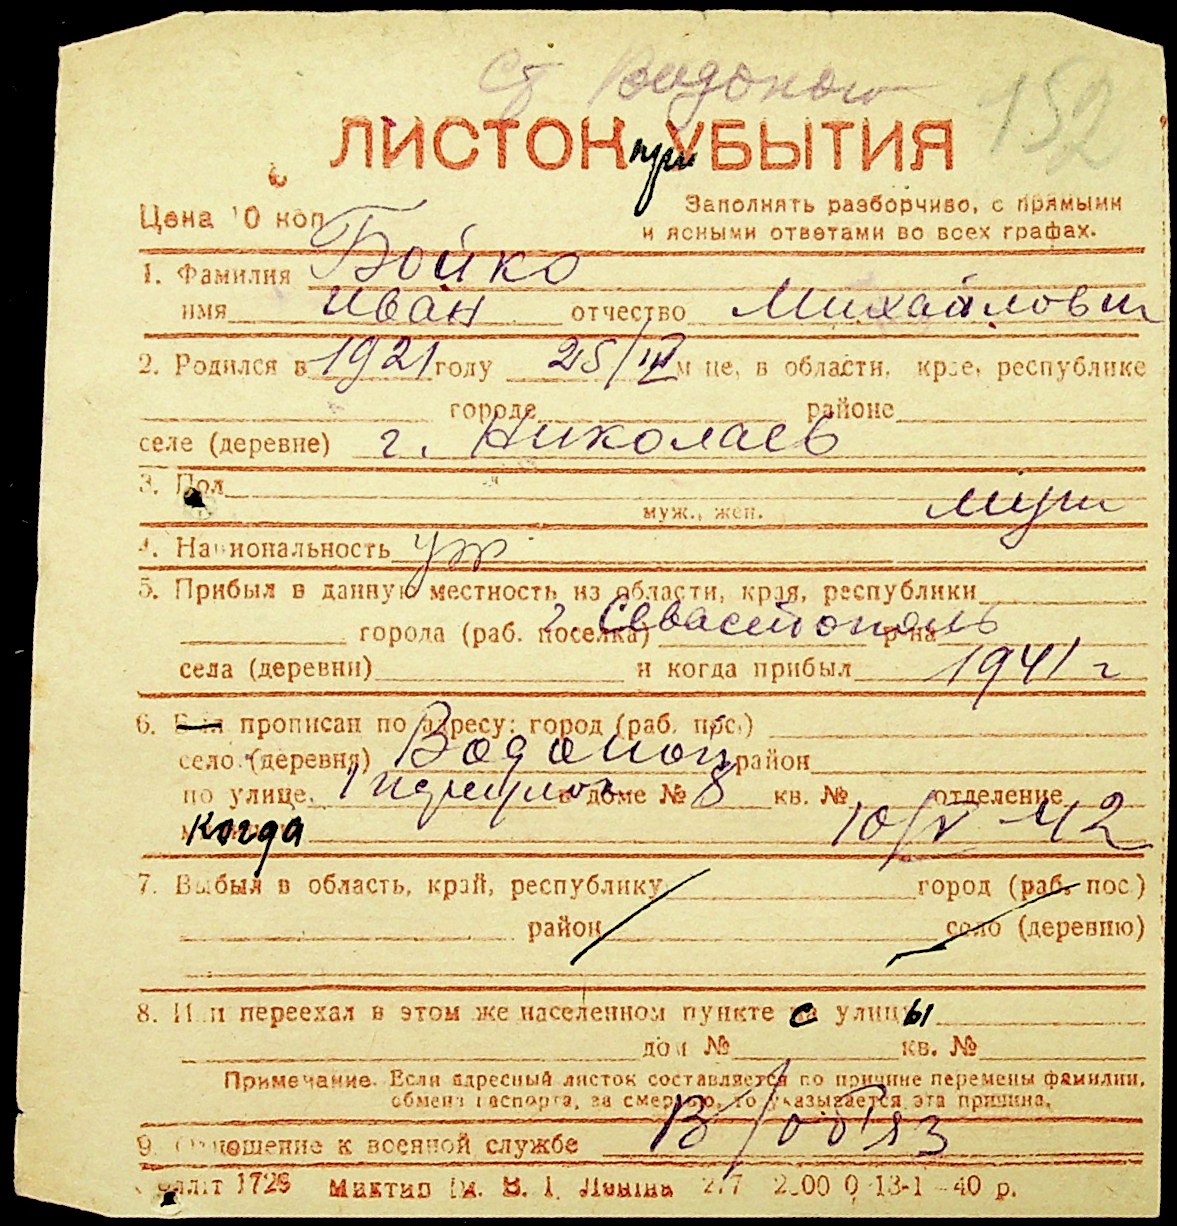 Ст Вадопой
152
ЛИСТОК при УБЫТИЯ
Цена 10 коп
Заполнять разборчиво, с прямыми
и ясными ответами во всех графах.
1. Фамилия Бойко
имя Иван отчество Михайлович
2. Родился в 1921 году 25/ м-це, в области, крае, республике
городе районе
селе (деревне) г. Николаев
3. Пол муж., жен. муж
4. Национальность укр
5. Прибыл в данную местность из области, края, республики
города (раб. поселка) г. Севастополь р-на
села (деревни) и когда прибыл 1941 г
6. Был прописан по адресу: город (раб. пос.)
село (деревня) Вадопой район
по улице, 1 переулок в доме № 8 кв. № отделение
когда 10/V 42
7. Выбыл в область, край, республику город (раб. пос.)
район село (деревню)
8. Или переехал в этом же населенном пункте с улицы
дом № кв. №
Примечание. Если адресный листок составляется по причине перемены фамилии,
обмена паспорта, за смертью, то указывается эта причина.
9. Отношение к военной службе В/обяз
1726 Миктип Им. В. І. Леніна 277 13-1-40 р.